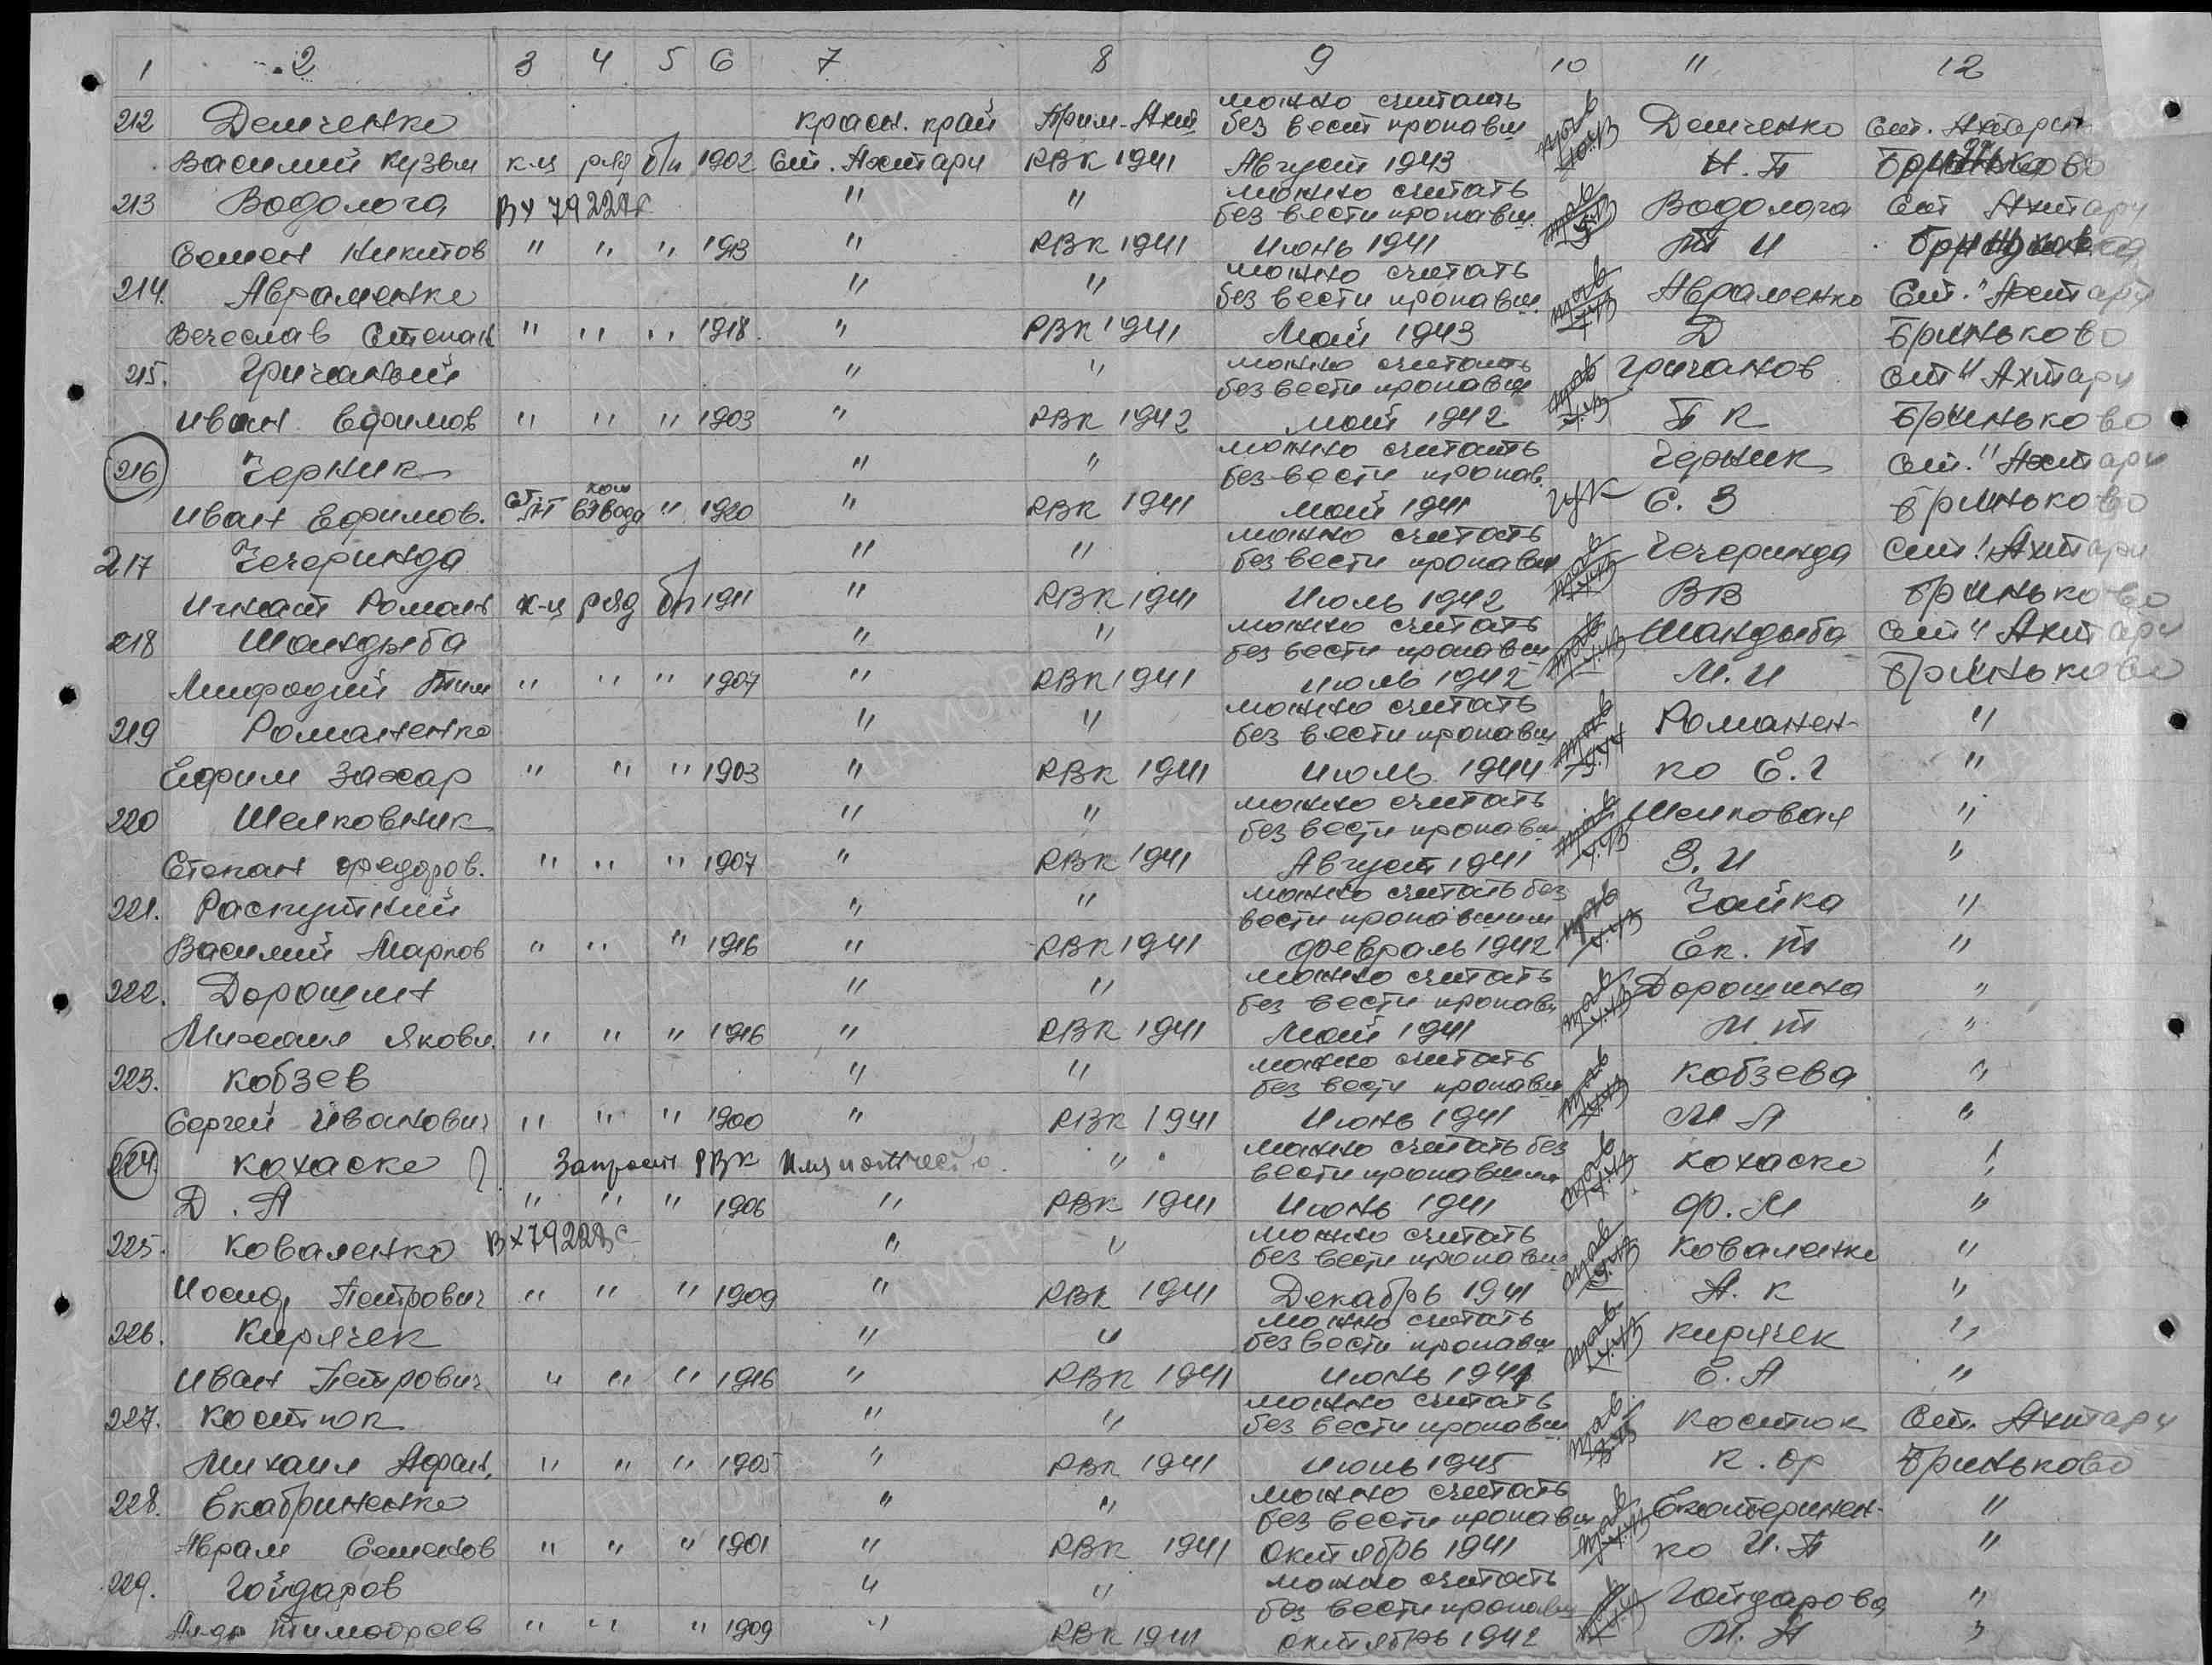 1 2 3 4 5 6 7 8 9 10 11 12
212 Демченко красн. край Прим-Ахт можно считать без вест пропавш Демченко Ст. Ахтари
Василий Кузьм к-ц ряд б/п 1902 Ст. Ахтари РВК 1941 Август 1943 Н. П Бриньково
213 Водолога Вх 79222 " " можно считать без вести пропавш. Водолога Ст Ахтари
Семен Никитов " " " 1913 " РВК 1941 Июнь 1941 Т И
214. Авраменко " " можно считать без вести пропавш. Авраменко Ст. Ахтари
Вечеслав Степан " " " 1918. " РВК 1941 Май 1943 Д Бриньково
215. Гричаный " " можно считать без вести пропавш Гричанов ст " Ахтари
Иван Ефимов " " " 1903 " РВК 1942 май 1942 П К Бриньково
216 Черник " " можно считать без вести пропав. Черник ст. " Ахтари
Иван Ефимов. ком взвода " 1920 " РВК 1941 май 1941 Е. З Бриньково
217 Чечеринда " " можно считать без вести пропавш Чечеринда Ст. Ахтари
Игнат Роман к-ц ряд б/п 1911 " РВК 1941 Июль 1942 ВВ Бриньково
218 Шандыба " " можно считать без вести пропавш Шандыба Ст " Ахтари
Мифодий Тим " " " 1907 " РВК 1941 июль 1942 М. И Бриньково
219 Романенко " " можно считать без вести пропавш Романен- "
Ефим Захар " " " 1903 " РВК 1941 Июль 1944 ко Е. Г "
220 Шелковник " " можно считать без вести пропавш Шелковая "
Степан Федоров. " " " 1907 " РВК 1941 Август 1941 З. И "
221. Распутний " " можно считать без вести пропавшим Чайка "
Василий Марков " " " 1916 " РВК 1941 Февраль 1942 Ек. Т "
222. Дорошин " " можно считать без вести пропавш Дорошина "
Михаил Яковл. " " " 1916 " РВК 1941 Май 1941 М. Т "
223. Кобзев " " можно считать без вести пропавш Кобзева "
Сергей Иванович " " " 1900 " РВК 1941 Июнь 1941 М А "
224. Кохаско ? Запросит РВК Имя и отчество. " можно считать без вести пропавшим Кохаско "
Д. А " " " 1906 " РВК 1941 Июнь 1941 Ф. М "
225. Коваленко Вх 79222 " " можно считать без вести пропавш Коваленко "
Иосиф Петрович " " " 1909 " РВК 1941 Декабрь 1941 А. К "
226. Кирячек " " можно считать без вести пропавш Кирячек "
Иван Петрович " " " 1916 " РВК 1941 июнь 1941 Е. А "
227. Костюк " " можно считать без вести пропавш Костюк Ст. Ахтари
Михаил Афан. " " " 1905 " РВК 1941 Июнь 1945 К. Ф Бриньково
228. Екабриненко " " можно считать без вести пропавш Екатеринен- "
Абрам Семенов " " " 1901 " РВК 1941 октябрь 1941 ко И. П "
229. Гойдаров " " можно считать без вести пропавш Гойдарова "
Тимофеев " " " 1909 " РВК 1941 октябрь 1942 М. А "